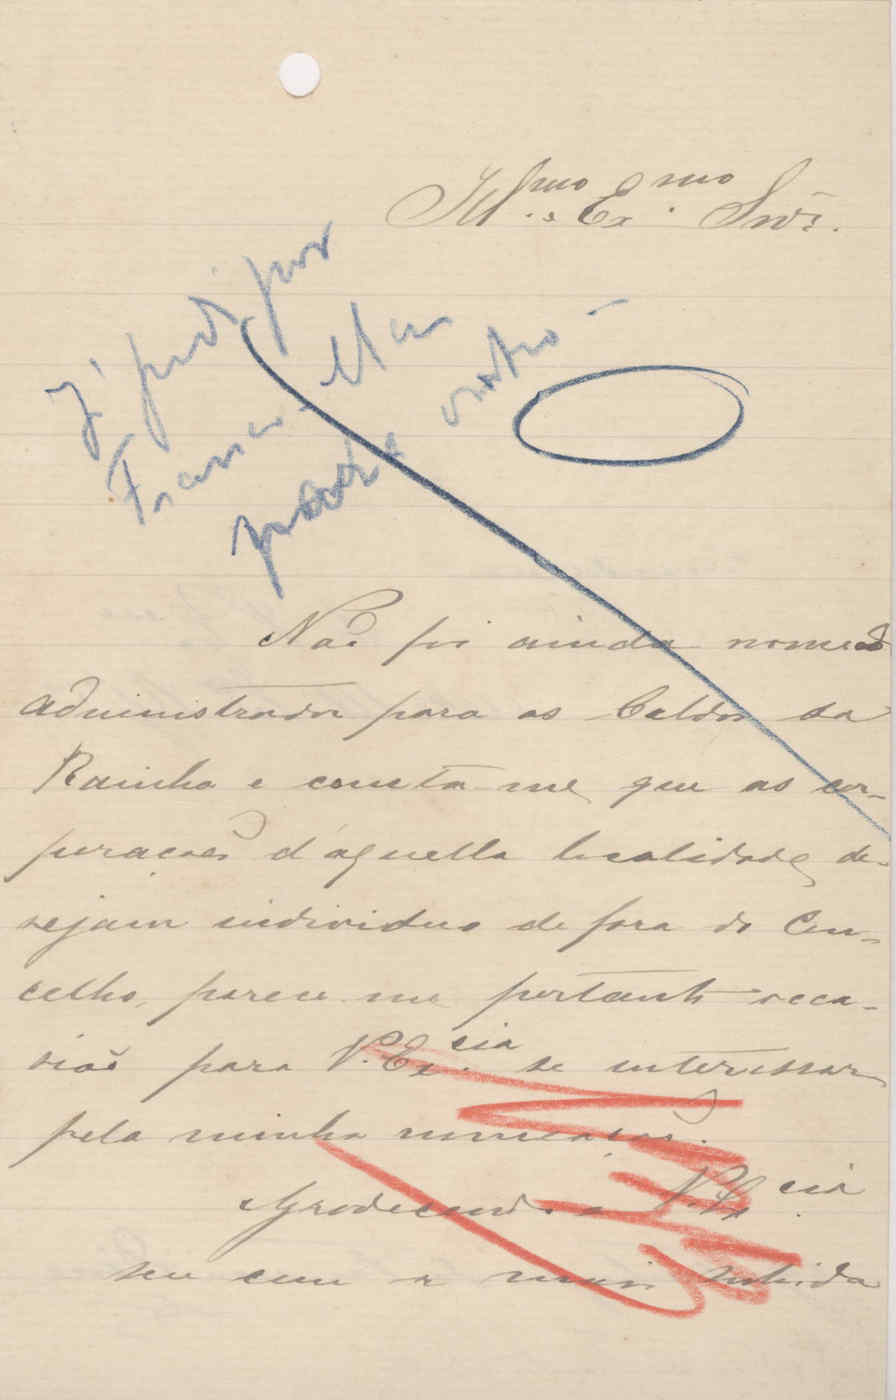 Ill.mo Ex.mo Snr.
Já pedi por
Franco
pedir outro –
Não foi ainda nomeado
administrador para as Caldas da
Rainha e consta me que as cor-
poracoes d'aquella localidade de-
sejam individuo de fora do Con-
celho, parece me portanto occa-
sião para V. Ex.cia se interessar
pela minha nomeação.
Agradecendo a V. Ex.cia
sou com a mais subida